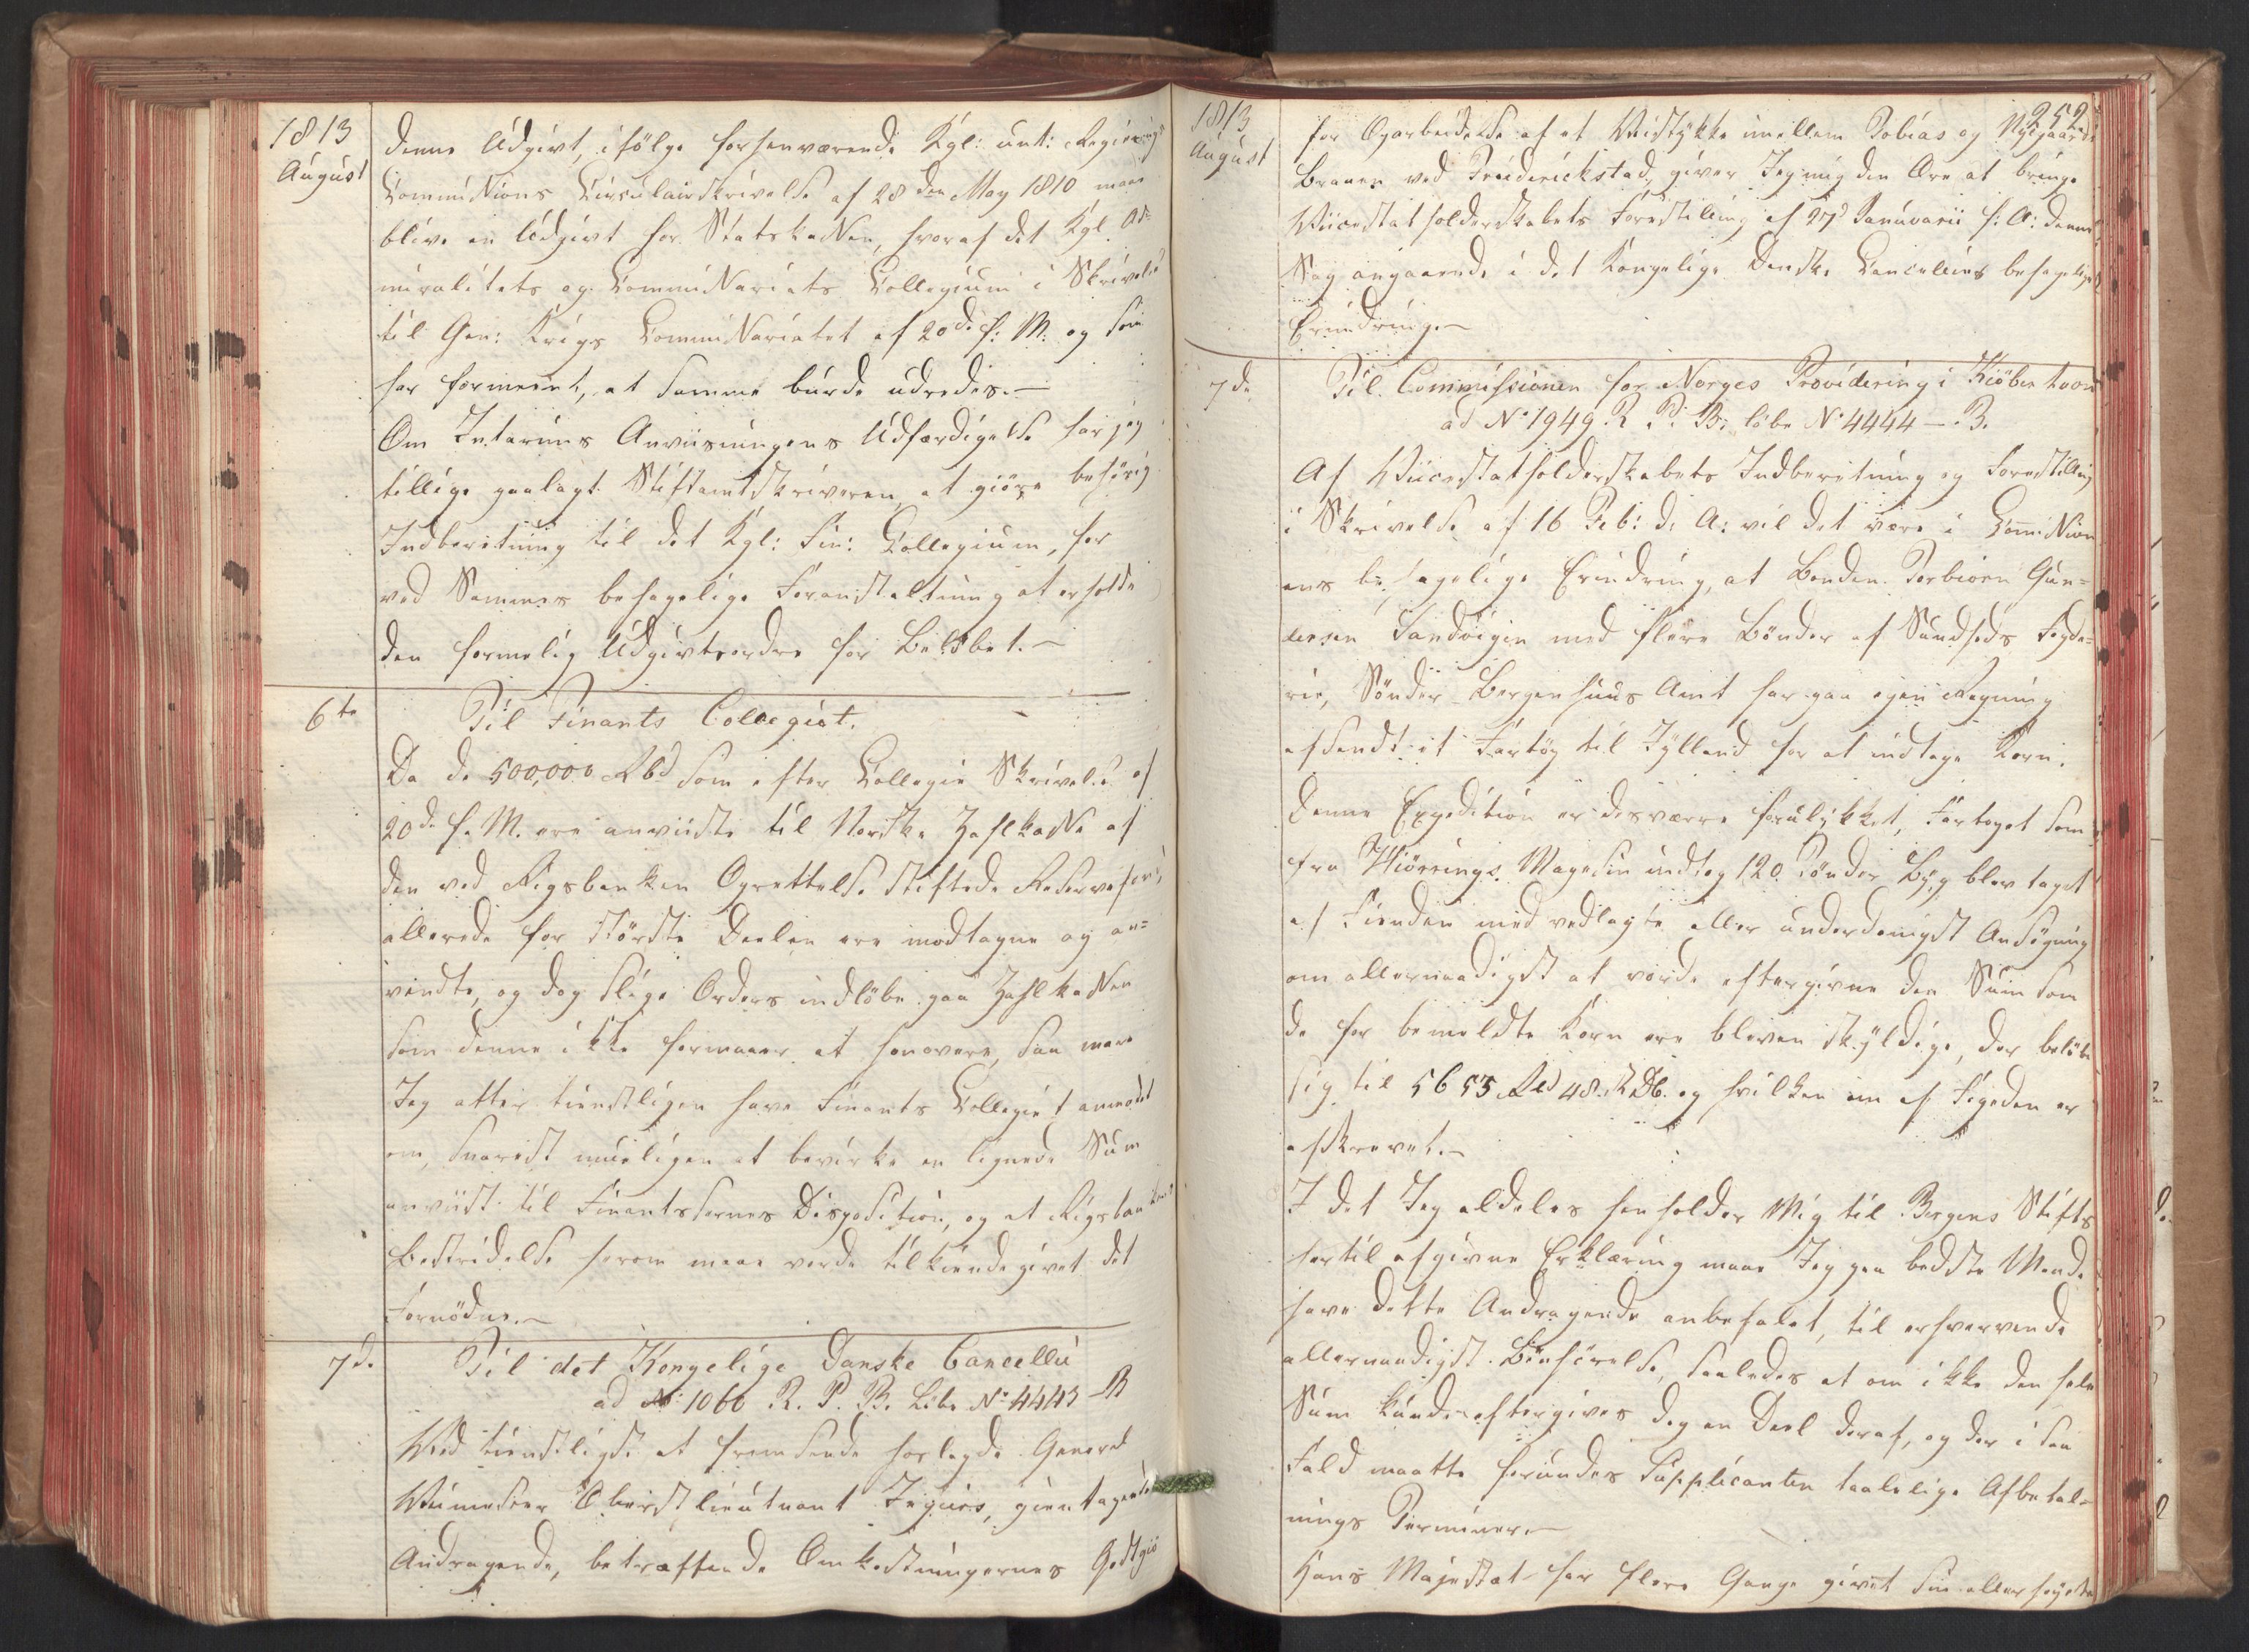 1813
August
denne Udgivt, ifölge forhenværende Kgl: int: Regierings
Commissions Circulairskrivelse af 28den May 1810 maae
blive en Udgivt for Statskassen, hvoraf det Kgl. Ad=
miralitets og Commissariats Collegium i Skrivelse
til Gen: Krigs Commissariatet af 20de f: M. og som
har formeent, at samme burde udredes.—
Om Interims Anviisningens Udfærdigelse har jeg
tillige paalagt Stiftamtskriveren, at giöre behörig
Indberetning til det Kgl: Fin: Collegium, for
ved Sammes behagelige Foranstaltning at erholde
den formelig Udgivtsordre for Belöbet.—
6te
Til Finants Collegiet.
Da de 500,000 Rbd som efter Collegie Skrivelse af
20de f. M. ere anviiste til Norske Zahlkasse af
den ved Rigsbanken Oprettelse stiftede Reservefond,
allerede for störste Deelen ere modtagne og an=
vendte, og dog slige Ordres indlöbe paa Zahlkassen
som denne ikke formaaer at honorere, saa maae
Jeg atter tienstligen have Finants Collegiet anmodet
om, snarest mueligen at bevirke en lignende Sum
anviist til Finantsernes Disposition, og at Rigsbankens
Bestridelse herom maae vorde tilkiendegivet det
Fornödne.—
7de
Til det Kongelige Danske Cancellie
ad No 1066 R. P. B. Löbe No 4443 B
Ved tienstligst at fremsende hoslagde General
Veimester Oberstlieutnant gientagende
Andragende, betræffende Omkostningernes Godtgiö
1813
August
252
for Oparbeidelse af et Veistykke imellem Tobias og Nygaards
Broen ved Freiderickstad, giver Jeg mig den Ære at bringe
Viicestatholderskabets Forestilling af 27de Januarii h: A: denne
Sag angaaende i det Kongelige Danske Cancellies behagelige
Erindring.—
7de
Til Commissionen for Norges Providering i Kiöbenhavn
ad No 1949 R. P. B. löbe No 4444 — B.
Af Viicestatholderskabets Indberetning og Forestilling
i Skrivelse af 16 Feb: d: A: vil det være i Commission
ens behagelige Erindring, at Bonden Torbiörn Gun=
dersen Sandvigen med flere Bönder af Sundfiords Fogde=
rie, Sönder Bergenhuus Amt har paa egen Regning
afsendt et Fartöy til Jylland for at indtage Korn.
Denne Expedition er desværre forulykket, Fartöyet som
fra Hiörrings Magasin indtog 120 Tönder Byg blev taget
af Fienden med vedlagte allerunderdanigst Ansögning
om allernaadigst at vorde eftergivne den Sum som
de for bemeldte Korn ere bleven skyldige, der belöbe
sig til 5653 Rbd 48 s. og hvilken nu af Fogeden er
afkrævet.—
I det Jeg aldeles henholder Mig til Bergens Stifts
hertil afgivne Erklæring maae Jeg paa bedste Maade
have dette Andragende anbefalet, til erhvervende
allernaadigst Bönhörelse, saaledes at om ikke den hele
Sum kunde eftergives dog en Deel deraf, og der i saa
Fald maatte forundes Supplicanten taalelige Afbetal=
nings Terminer.—
Hans Majestæt har flere Gange givet sin allerhöyeste